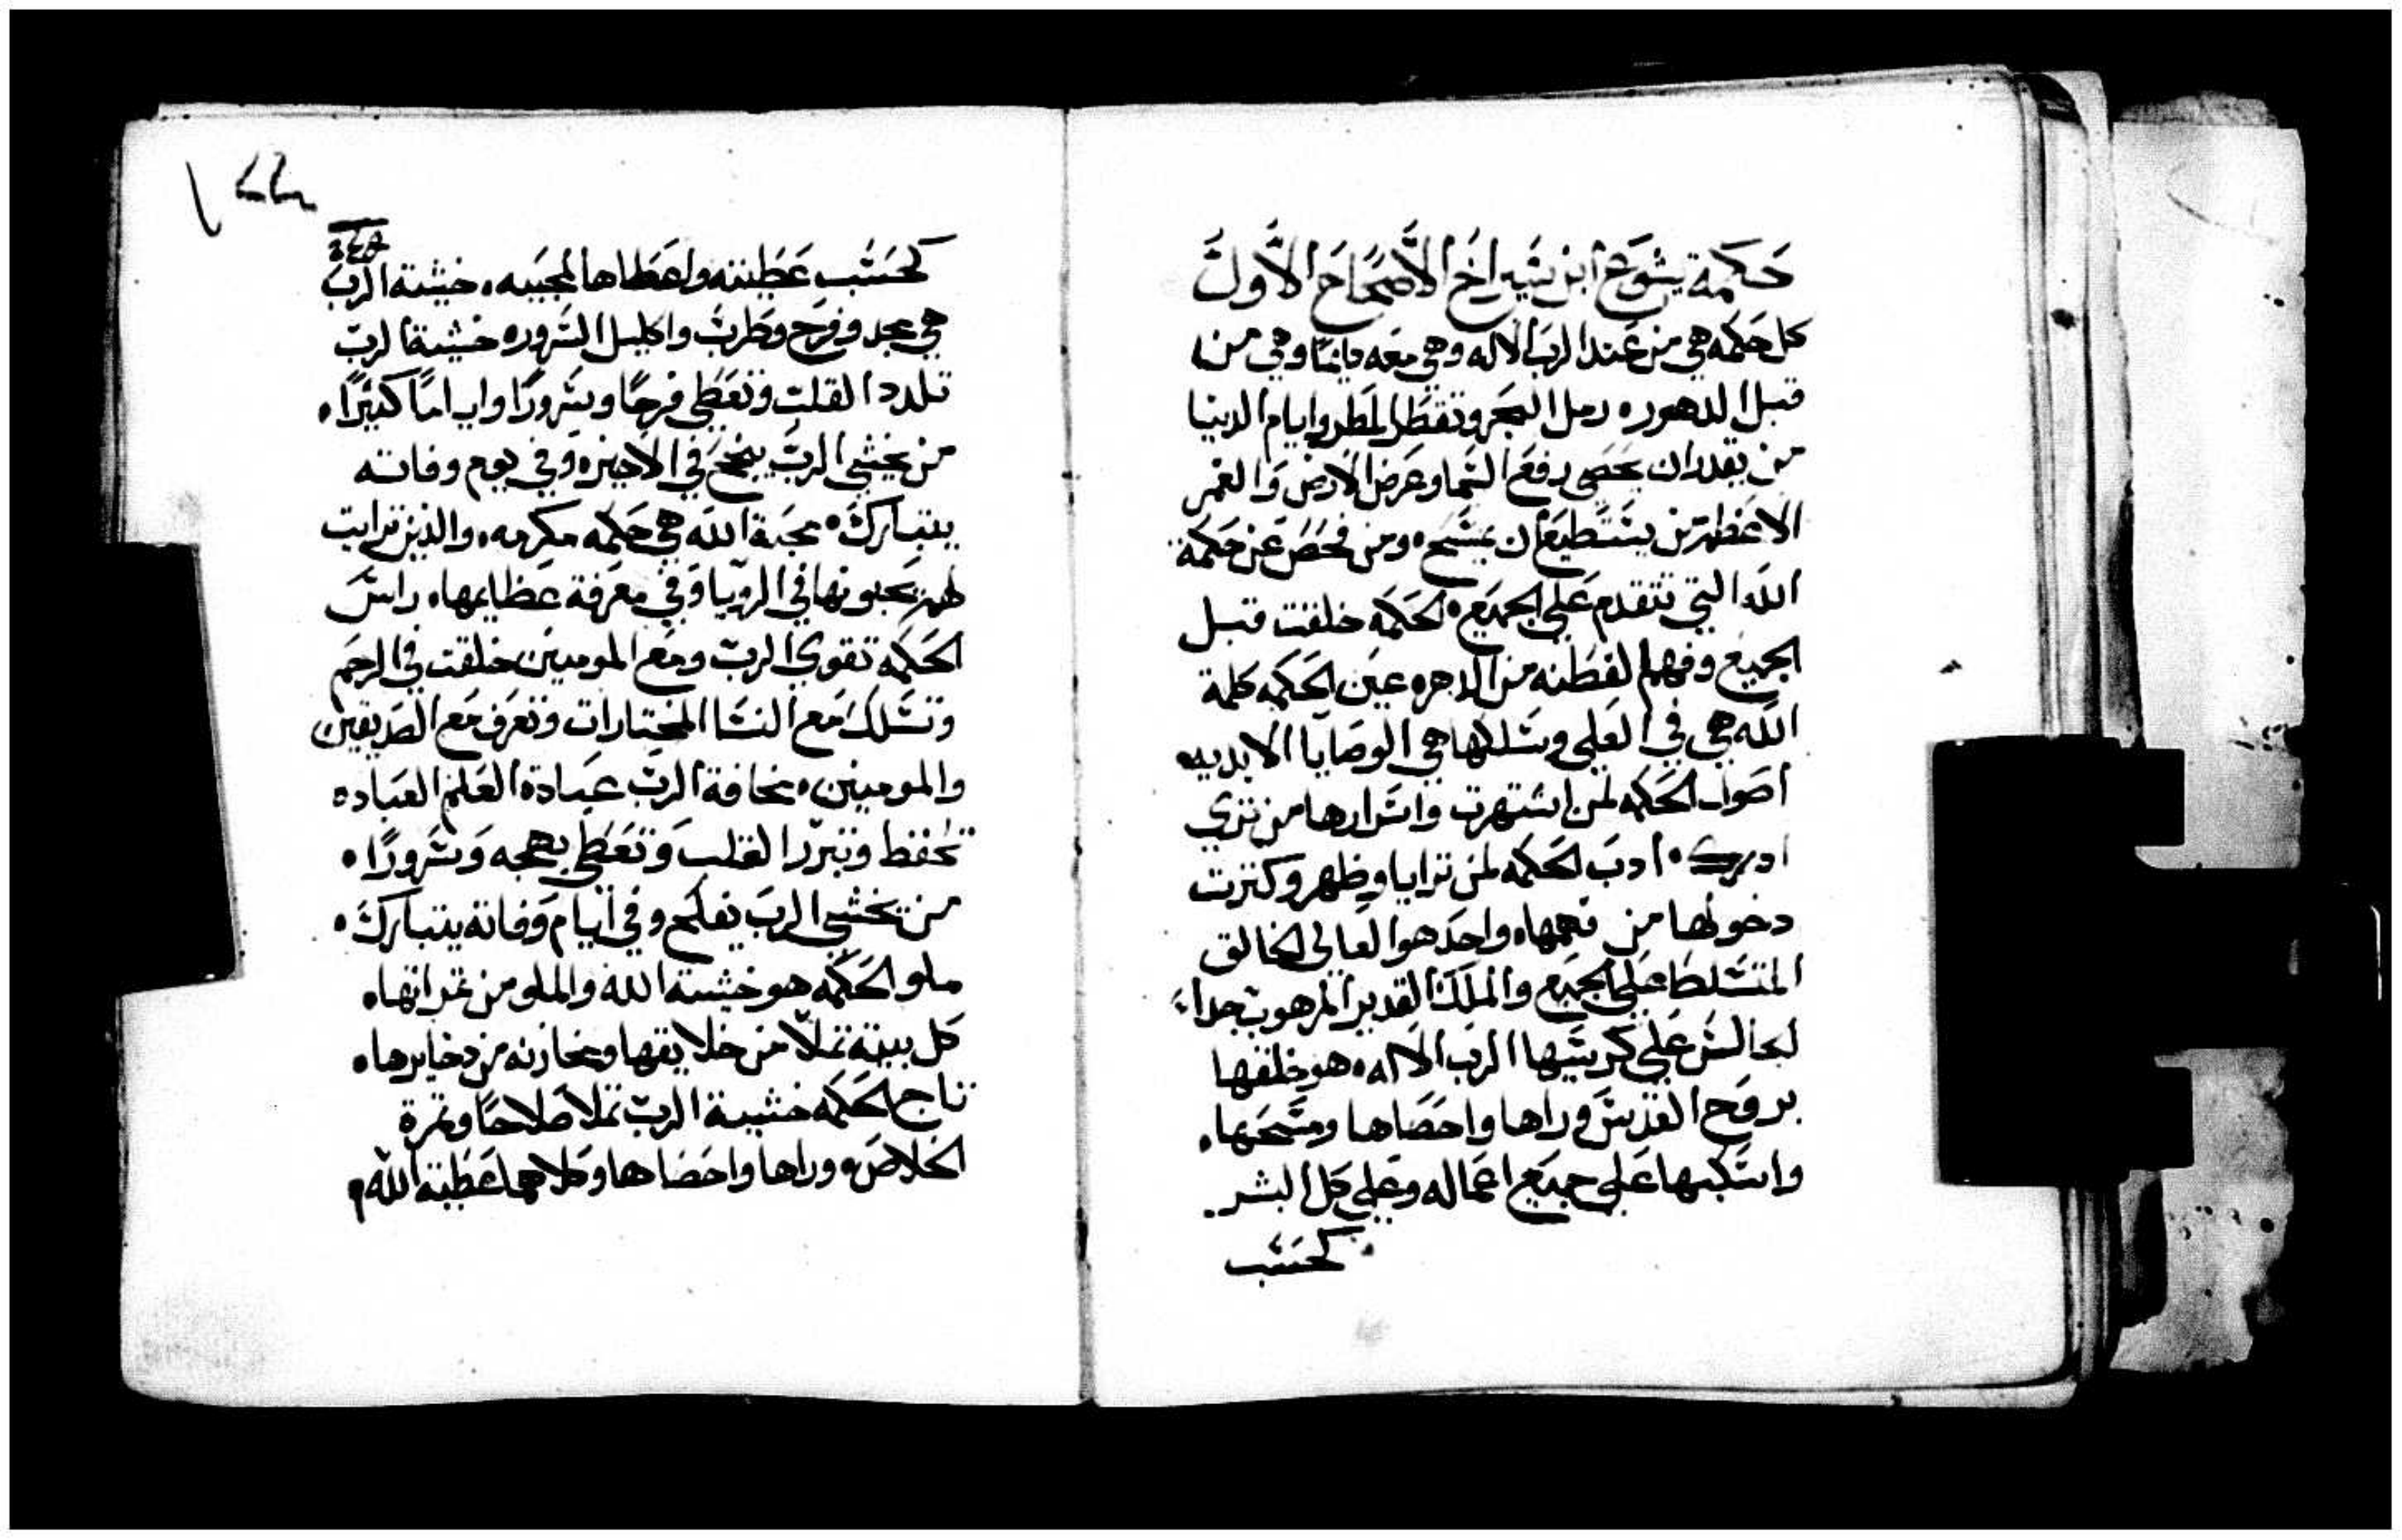 حكمة يشوع ابن شيراخ الاصحاح الاول
كل حكمه هي من عند الرب الاله وهي معه دايمًا وهي من
قبل الدهور ه رمل البحر ونقط المطر وايام الدنيا
من يقدر ان يحصى رفع السما وعرض الارض والغمر
الاعظم من يستطيع ان يمسح ه ومن فحص عن حكمة
الله التي تتقدم علي الجميع ه الحكمه خلقت قبل
الجميع وفهم الفطنه من الدهر ه عين الحكمه كلمة
الله هي في العلي وسلكها هي الوصايا الابديه
اصول الحكمه لمن اشتهرت واسرارها من تري
ادرك ه ادب الحكمه لمن ترايا وظهر وكثرت
دخولها من فهمها ه واحد هو العالي الخالق
المتسلط علي الجميع والملك القدير المرهوب جدا
الجالس علي كرسيها الرب الاله ه هو خلقها
بروح القدس وراها واحصاها ومسحها ه
واسكبها علي جميع اعماله وعلي كل البشر
كحسب
كحسب عطيته واعطاها لمحبيه ه خشية الرب
هي مجد وفرح وطرب واكليل السرور ه خشية الرب
تلدد القلب وتعطي فرحًا وسرورًا واياامًا كثيرًا ه
من يخشي الرب ينجح في الاخيره وفي يوم وفاته
يتبارك ه محبة الله هي حكمه مكرمه ه والذين ترايت
لهم يحبونها في الرويا وفي معرفة عظايمها ه راس
الحكمه تقوي الرب ومع المومنين خلقت في الرحم
وتسلك مع النسا المختارات وتعرف مع الصديقين
والمومنين ه مخافة الرب عبادة العلم العباده
تحفظ وتبرر القلب وتعطي بهجه وسرورًا ه
من يخشي الرب يفلح وفي ايام وفاته يتبارك ه
ملو الحكمه هو خشية الله والملو من ثمراتها ه
كل بيته تملا من خلايقها ومخازنه من دخايرها ه
تاج الحكمه خشية الرب تملا صلاحًا وثمرة
الخلاص ه وراها واحصاها وكلاهما عطية الله ه